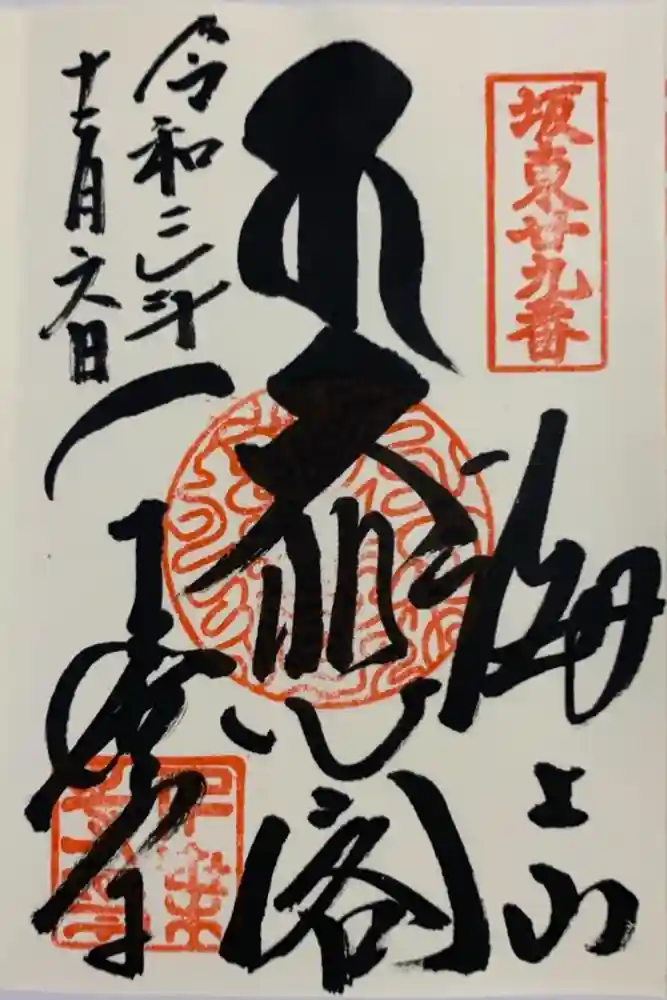 坂東廿九番
海上山
大悲閣
千葉寺
令和三年
十二月六日